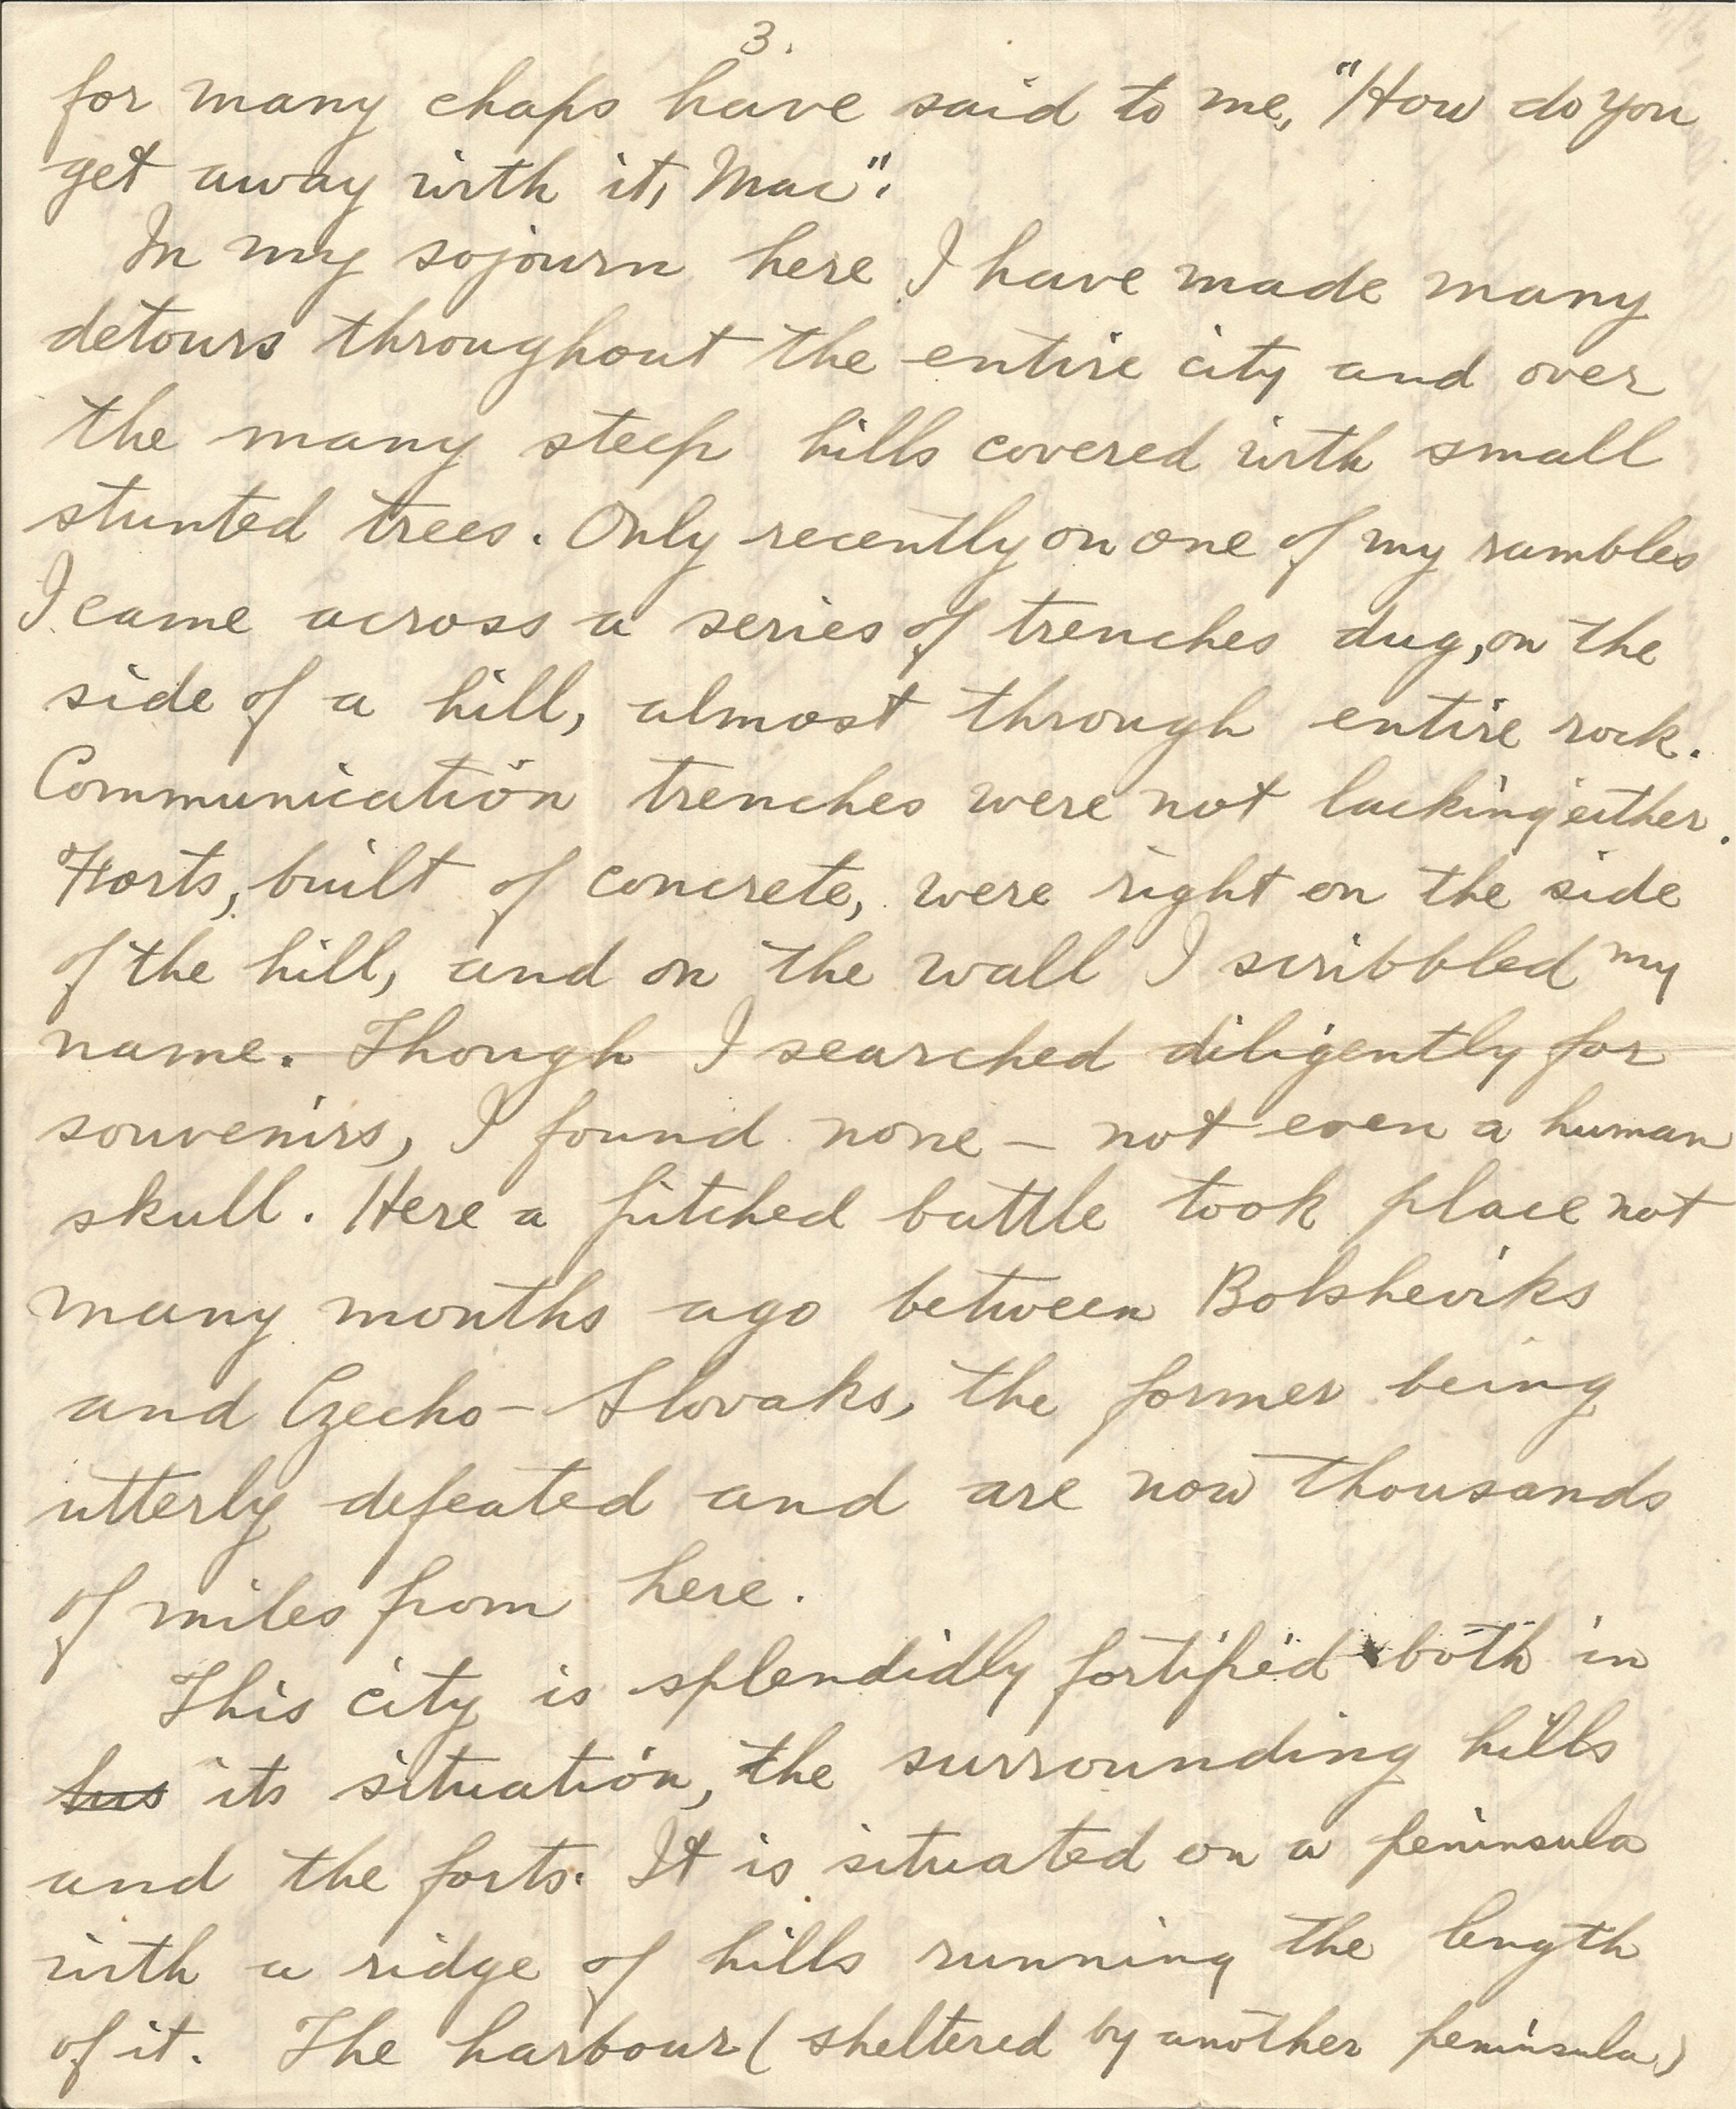 3.
for many chaps have said to me, "How do you
get away with it, Mac".
In my sojourn here I have made many
detours throughout the entire city and over
the many steep hills covered with small
stunted trees. Only recently on one of my rambles
I came across a series of trenches dug, on the
side of a hill, almost through entire rock.
Communication trenches were not lacking either.
Forts, built of concrete, were right on the side
of the hill, and on the wall I scribbled my
name. Though I searched diligently for
souvenirs, I found none – not even a human
skull. Here a pitched battle took place not
many months ago between Bolsheviks
and Czecho-Slovaks, the former being
utterly defeated and are now thousands
of miles from here.
This city is splendidly fortified both in
its situation, the surrounding hills
and the forts. It is situated on a peninsula
with a ridge of hills running the length
of it. The harbour (sheltered by another peninsula)